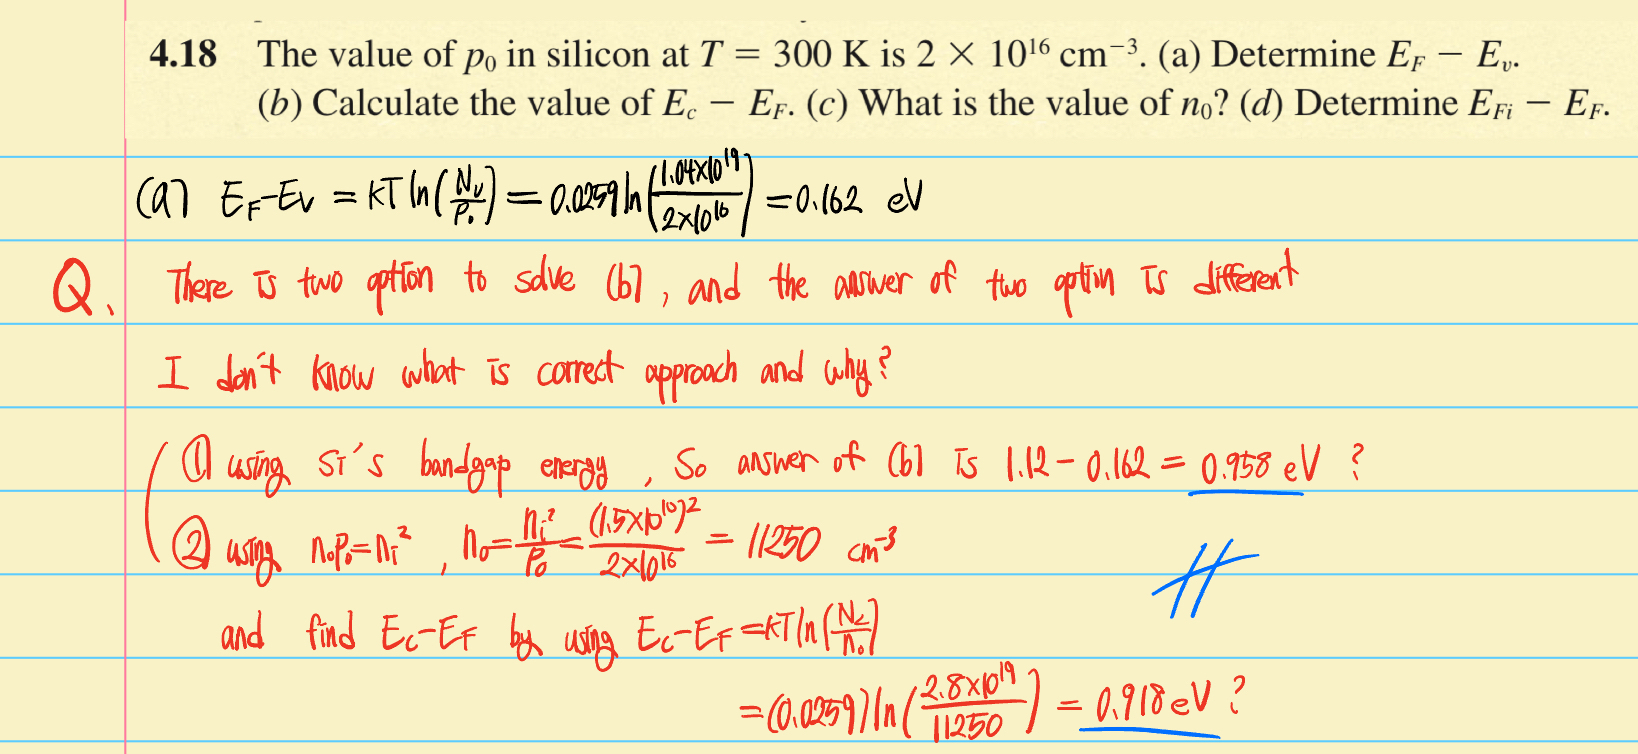 4.18 The value of p₀ in silicon at T = 300 K is 2 × 10¹⁶ cm⁻³. (a) Determine E_F − E_v.
(b) Calculate the value of E_c − E_F. (c) What is the value of n₀? (d) Determine E_Fi − E_F.
(a) E_F-E_v = kT ln(N_v/P₀) = 0.0259 ln(1.04×10¹⁹/2×10¹⁶) = 0.162 eV
Q. There is two option to solve (b), and the answer of two option is different
I don't know what is correct approach and why?
① using Si's bandgap energy, So answer of (b) is 1.12 - 0.162 = 0.958 eV ?
② using n₀P₀=n_i², n₀=n_i²/P₀=(1.5×10¹⁰)²/2×10¹⁶ = 11250 cm⁻³
and find E_c-E_F by using E_c-E_F = kT ln(N_c/n₀)
= (0.0259) ln(2.8×10¹⁹/11250) = 0.918 eV ?